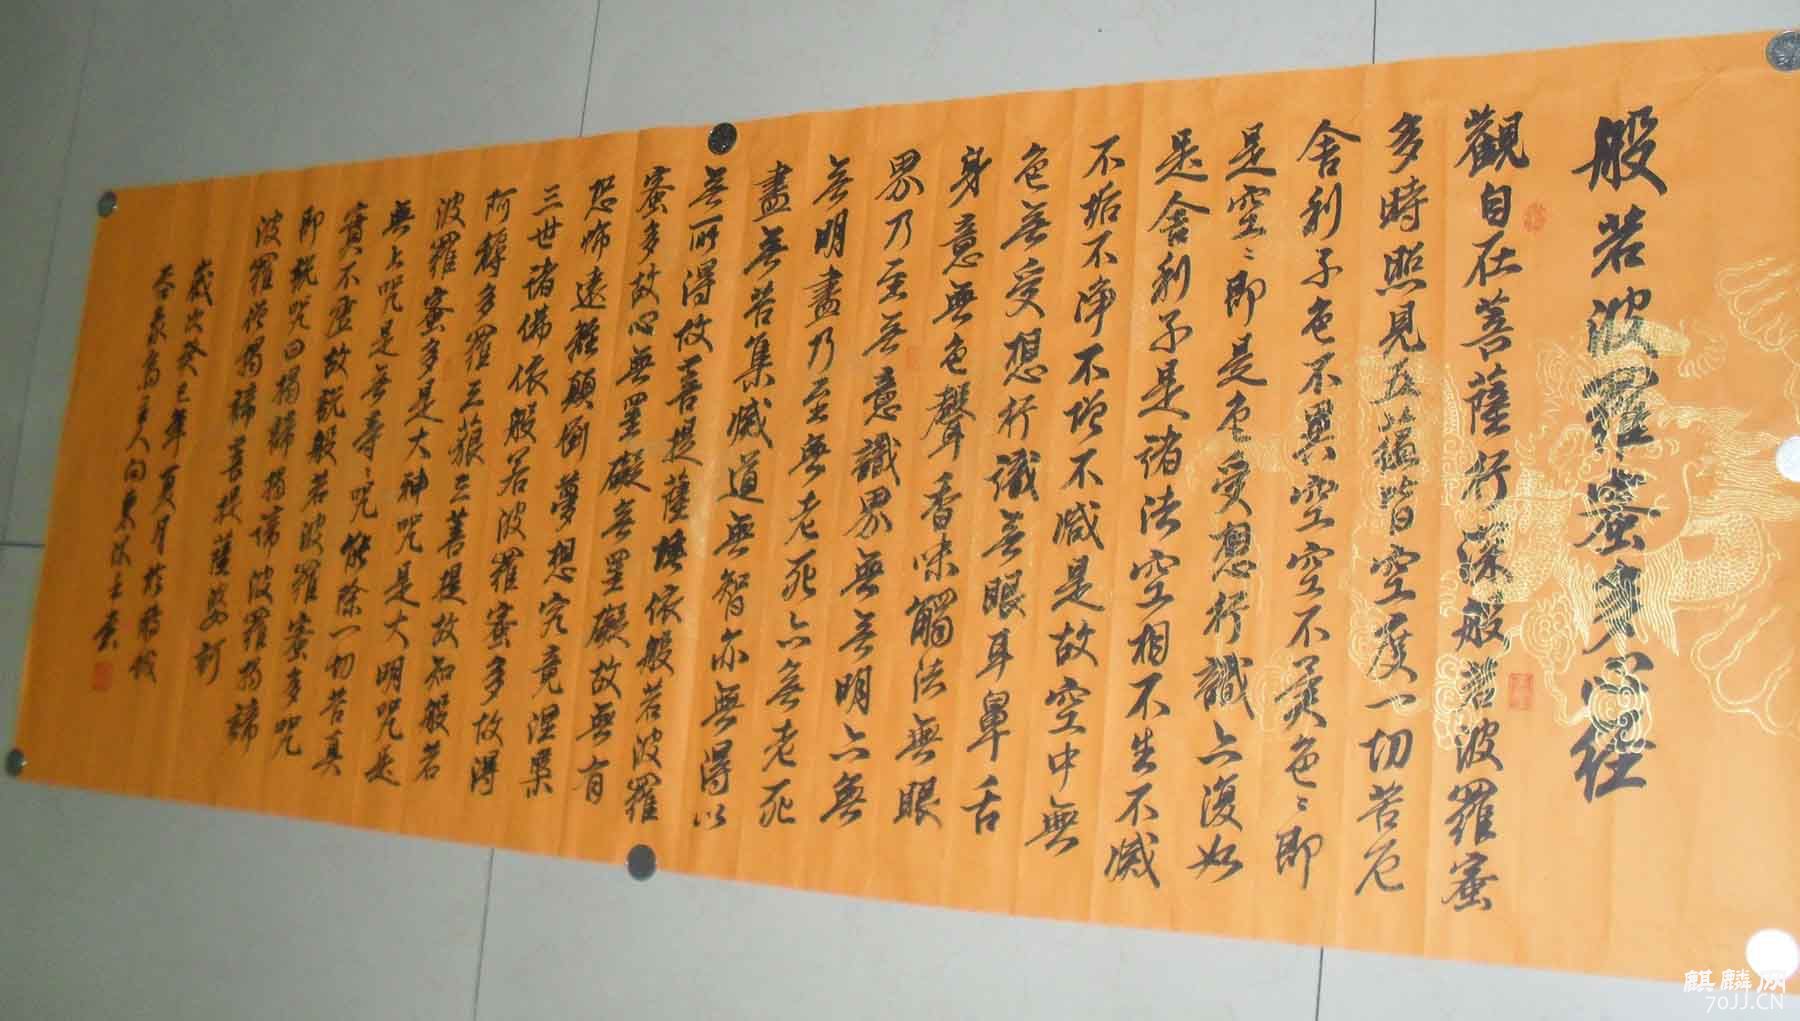 般若波羅蜜多心经
觀自在菩薩行深般若波羅蜜
多時照見五蘊皆空度一切苦厄
舍利子色不異空空不異色〻即
是空〻即是色受想行識亦復如
是舍利子是諸法空相不生不滅
不垢不净不增不减是故空中無
色無受想行識無眼耳鼻舌
身意無色聲香味觸法無眼
界乃至無意識界無無明亦無
無明盡乃至無老死亦無老死
盡無苦集滅道無智亦無得以
無所得故菩提薩埵依般若波羅
蜜多故心無罣礙無罣礙故無有
恐怖遠離顛倒夢想究竟涅槃
三世諸佛依般若波羅蜜多故得
阿耨多羅三藐三菩提故知般若
波羅蜜多是大神咒是大明咒是
無上咒是無等〻咒能除一切苦真
實不虛故説般若波羅蜜多咒
即説咒曰揭諦揭諦波羅揭諦
波羅僧揭諦菩提薩婆訶
歲次癸巳年夏月於榕城
主人向東居士書
麒麟网
70JJ.CN